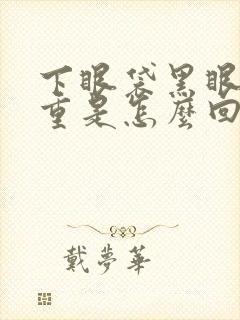 下眼袋黑眼
重是怎麼回
戴夢華